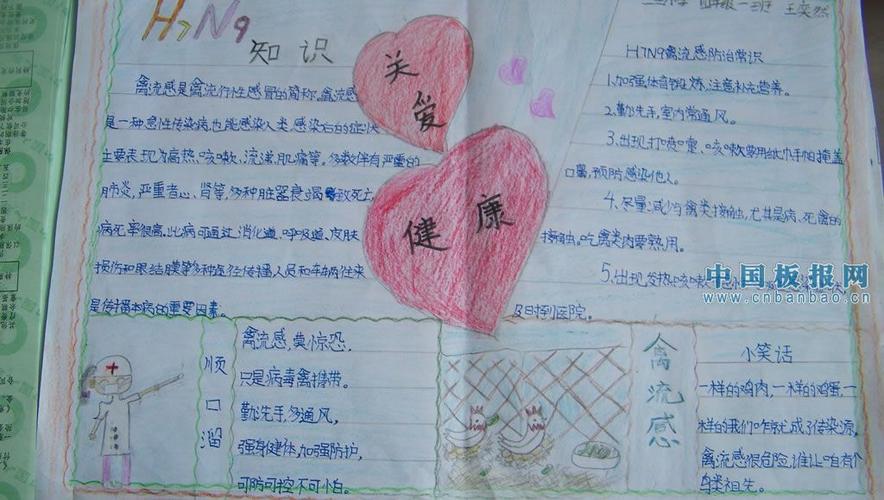 H7N9
知识
禽流感是禽流行性感冒的简称。禽流感
是一种急性传染病,也能感染人类,感染后的症状
主要表现为高热、咳嗽、流涕、肌痛等。多数伴有严重的
肺炎,严重者心、肾等,多种脏器衰竭导致死亡,
病死率很高,此病可通过消化道、呼吸道、皮肤
损伤和眼结膜等多种途径传播人员和车辆往来
是传播本病的重要因素。
关爱
健康
四年级一班 王奕然
H7N9禽流感防治常识
1.加强体育锻炼,注意补充营养。
2.勤洗手,室内常通风。
3.出现打喷嚏、咳嗽要用纸巾手帕掩盖
口鼻,预防感染他人。
4.尽量减少与禽类接触,尤其是病、死禽的
接触。吃禽类肉要熟用。
5.出现发热、咳嗽
及时到医院。
中国板报网
www.cnbanbao.cn
顺口溜
禽流感,莫惊恐,
只是病毒禽携带。
勤洗手,多通风,
强身健体,加强防护,
可防可控不可小白。
禽流感
小笑话
一样的鸡肉,一样的鸡蛋,一
样的我们咋就成了传染源,
禽流感很危险,谁让咱有个
鸟类祖先。